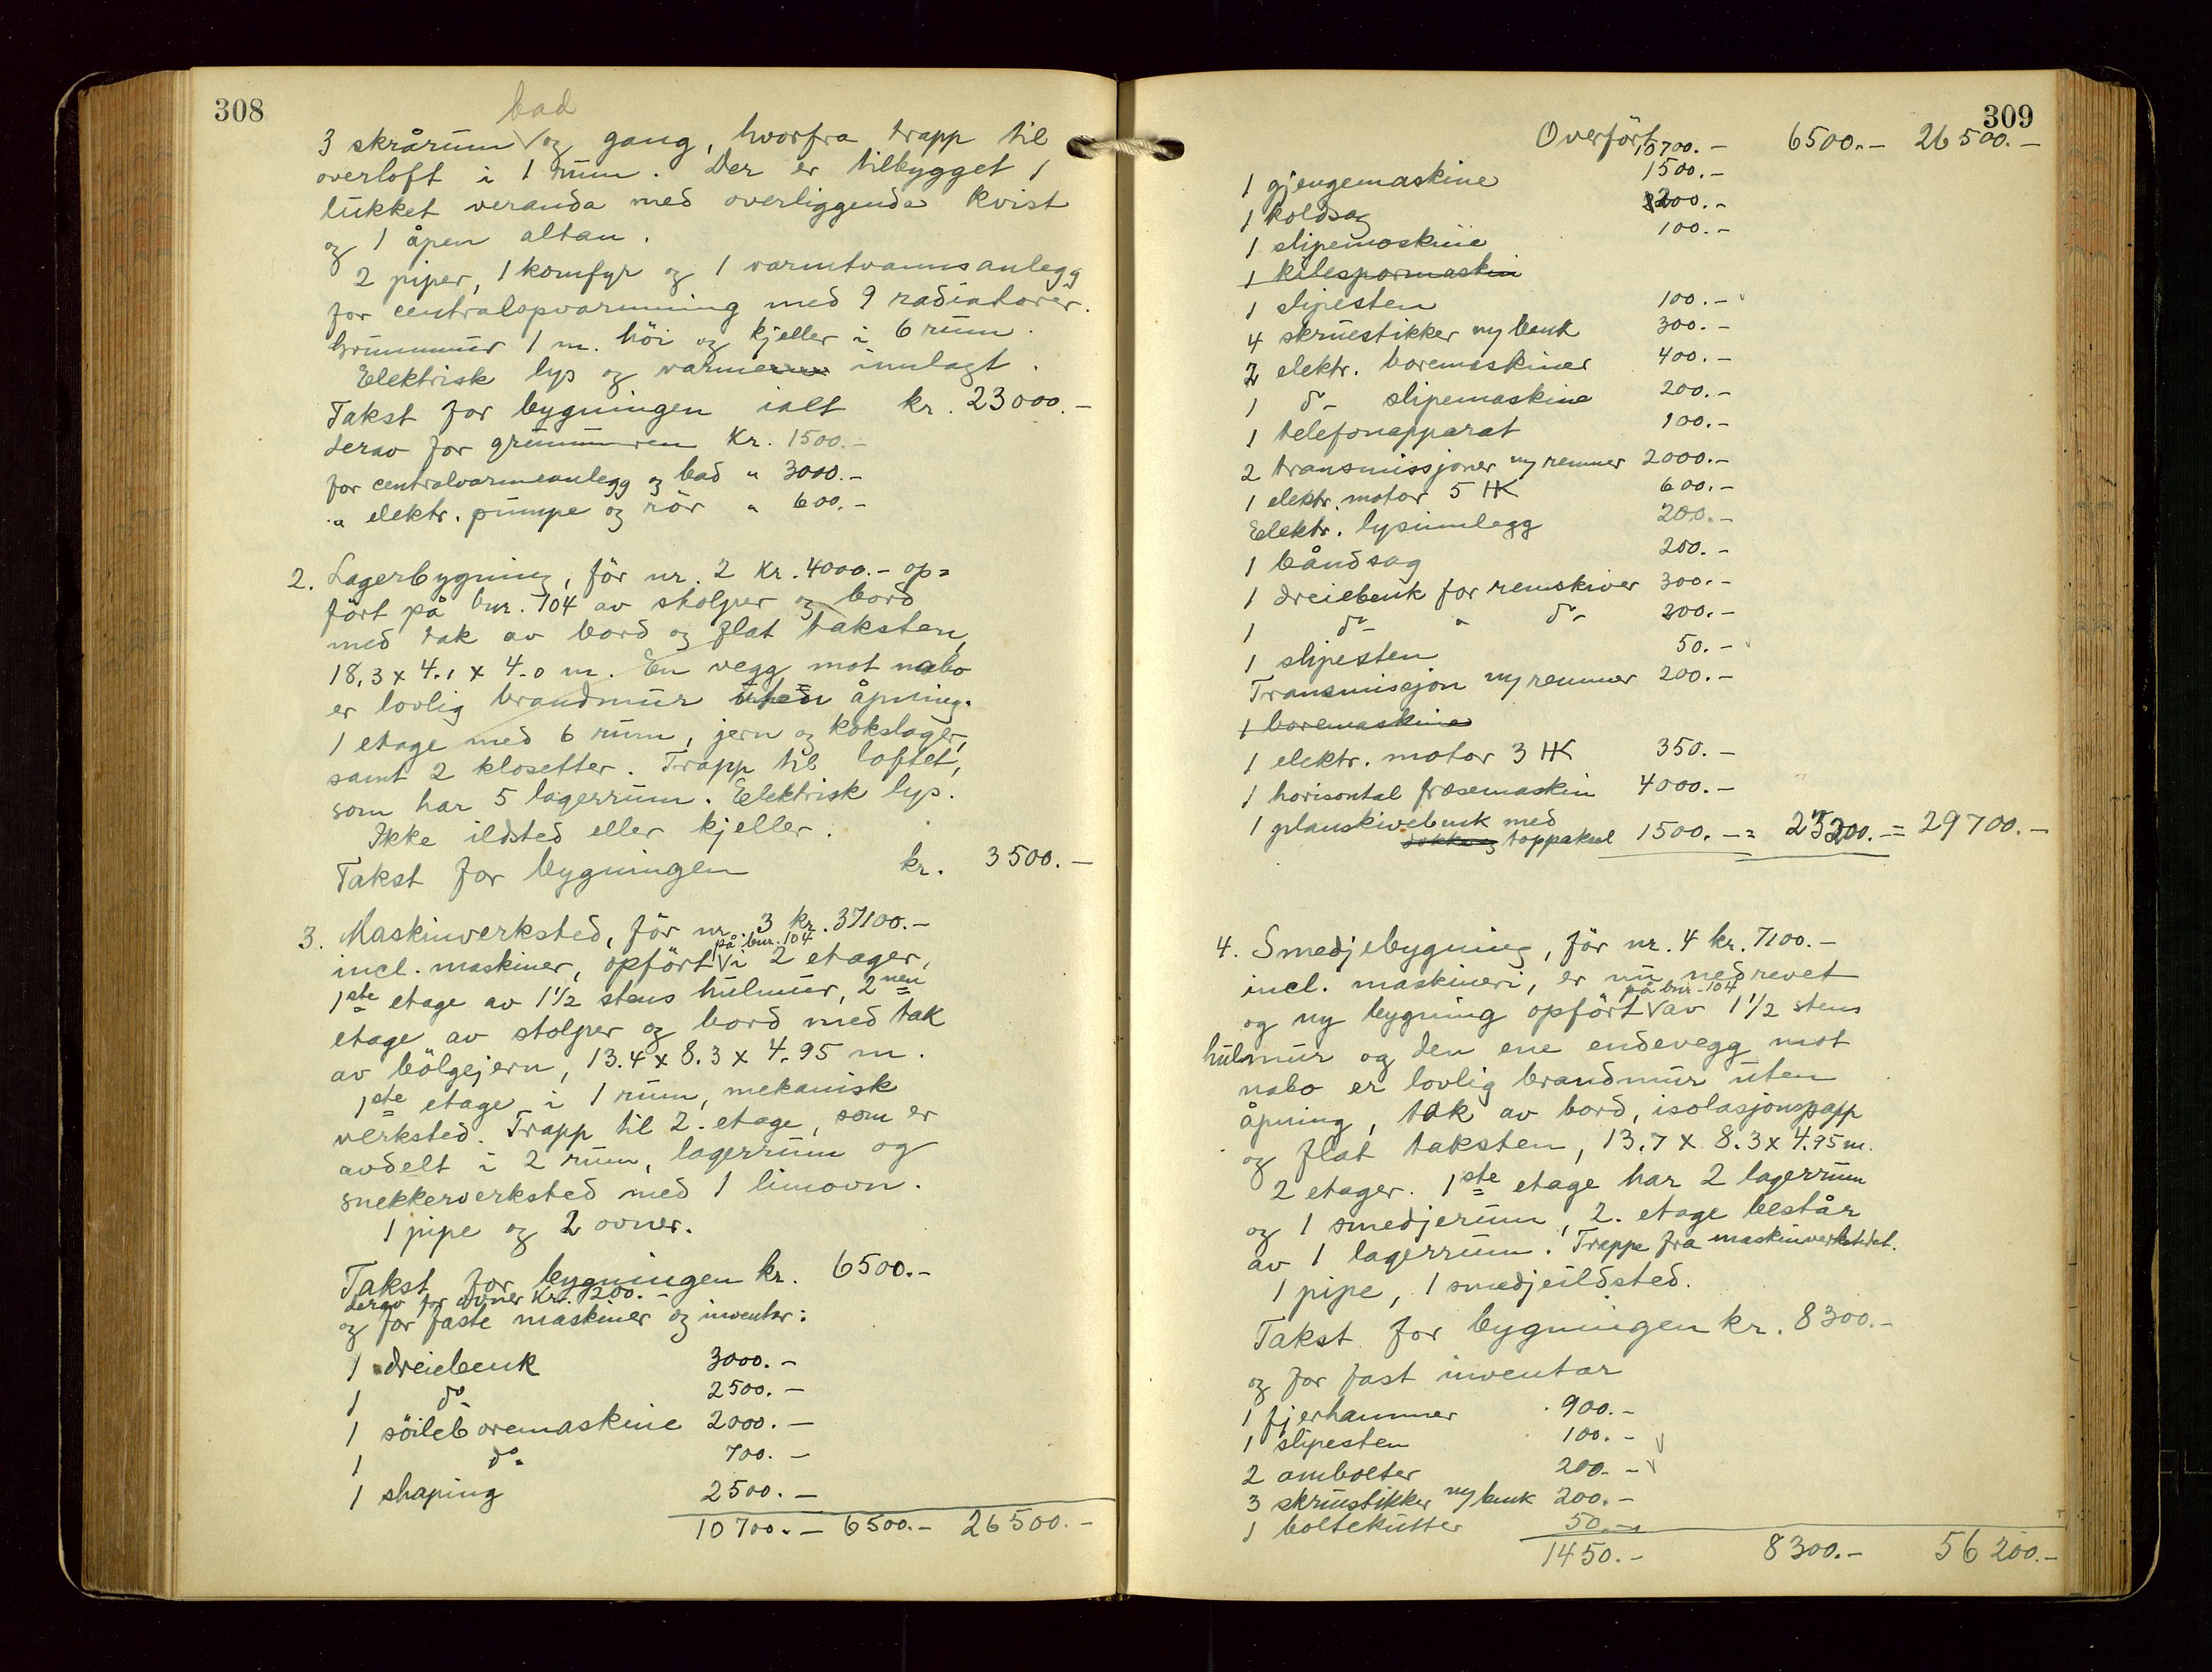 308
bad
3 skrårum √ og gang, hvorfra trapp til
overloft i 1 rum. Der er tilbygget 1
lukket veranda med overliggende kvist
og 1 åpen altan.
2 piper, 1 komfyr og 1 varmtvannsanlegg
for centralopvarmning med 9 radiatorer.
Grunnmur 1 m. höi og kjeller i 6 rum.
Elektrisk lys og varme innlagt.
Takst for bygningen ialt kr. 23000.-
derav for grunnmuren Kr. 1500.-
for centralvarmeanlegg og bad " 3000.-
" elektr. pumpe og rör " 600.-
2. Lagerbygning, för nr. 2 Kr. 4000.- op=
fört på bnr. 104 av stolper og bord
med tak av bord og flat taksten,
18.3 x 4.1 x 4.0 m. En vegg mot nabo
er lovlig brandmur uten åpning.
1 etage med 6 rum, jern og kokslager,
samt 2 klosetter. Trapp til loftet,
som har 5 lagerrum. Elektrisk lys.
Ikke ildsted eller kjeller.
Takst for bygningen kr. 3500.-
3. Maskinverksted, för nr. 3 kr. 37100.-
på bnr. 104
incl. maskiner, opfört √ i 2 etager,
1ste etage av 1 1/2 stens hulmur, 2nen
etage av stolper og bord med tak
av bölgejern, 13.4 x 8.3 x 4.95 m.
1ste etage i 1 rum, mekanisk
verksted. Trapp til 2. etage, som er
avdelt i 2 rum, lagerrum og
snekkerverksted med 1 limovn.
1 pipe og 2 ovner.
Takst for bygningen kr. 6500.-
derav for ovner Kr. 200.-
og for faste maskiner og inventar:
1 dreiebenk 3000.-
1 do 2500.-
1 söileboremaskine 2000.-
1 do. 700.-
1 shaping 2500.-
10700.- 6500.- 26500.-
309
Overfört 10700.- 6500.- 26500.-
1 gjengemaskine 1500.-
1 koldsag 200.-
1 slipemaskine 100.-
1 kilespormaskin
1 slipesten 100.-
4 skruestikker m/ benk 300.-
2 elektr. boremaskiner 400.-
1 do- slipemaskine 200.-
1 telefonapparat 100.-
2 transmissjoner m/ remmer 2000.-
1 elektr. motor 5 HK 600.-
Elektr. lysinnlegg 200.-
1 båndsag 200.-
1 dreiebenk for remskiver 300.-
1 do- " do- 200.-
1 slipesten 50.-
Transmissjon m/ remmer 200.-
1 boremaskine
1 elektr. motor 3 HK 350.-
1 horisontal fræsemaskin 4000.-
1 planskivebenk med
dokke og toppaksel 1500.- = 23200.- = 29700.-
4. Smedjebygning, för nr. 4 kr. 7100.-
incl. maskineri, er nu nedrevet
på bnr. 104
og ny bygning opfört √ av 1 1/2 stens
hulmur og den ene endevegg mot
nabo er lovlig brandmur uten
åpning, tak av bord, isolasjonspapp
og flat taksten, 13.7 x 8.3 x 4.95 m.
2 etager. 1ste etage har 2 lagerrum
og 1 smedjerum, 2. etage består
av 1 lagerrum. Trappe fra maskinverkstedet.
1 pipe, 1 smedjeildsted.
Takst for bygningen kr. 8300.-
og for fast inventar
1 fjerhammer 900.-
1 slipesten 100.-
2 ambolter 200.-
3 skruestikker m/ benk 200.-
1 boltekutter 50.-
1450.- 8300.- 56200.-